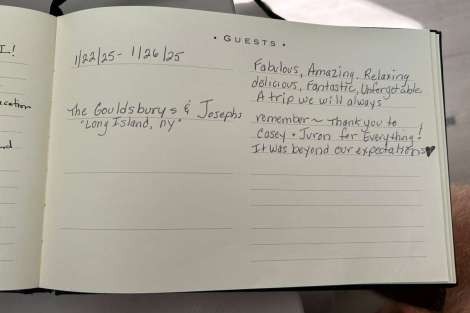 I!
cation
• GUESTS •
1/22/25 - 1/26/25
The Gouldsburys & Josephs
"Long Island, ny"
Fabulous, Amazing, Relaxing
delicious, Fantastic, Unforgetable
A trip we will always
remember ~ Thank you to
Casey + Juron for Everything!
It was beyond our expectations♥